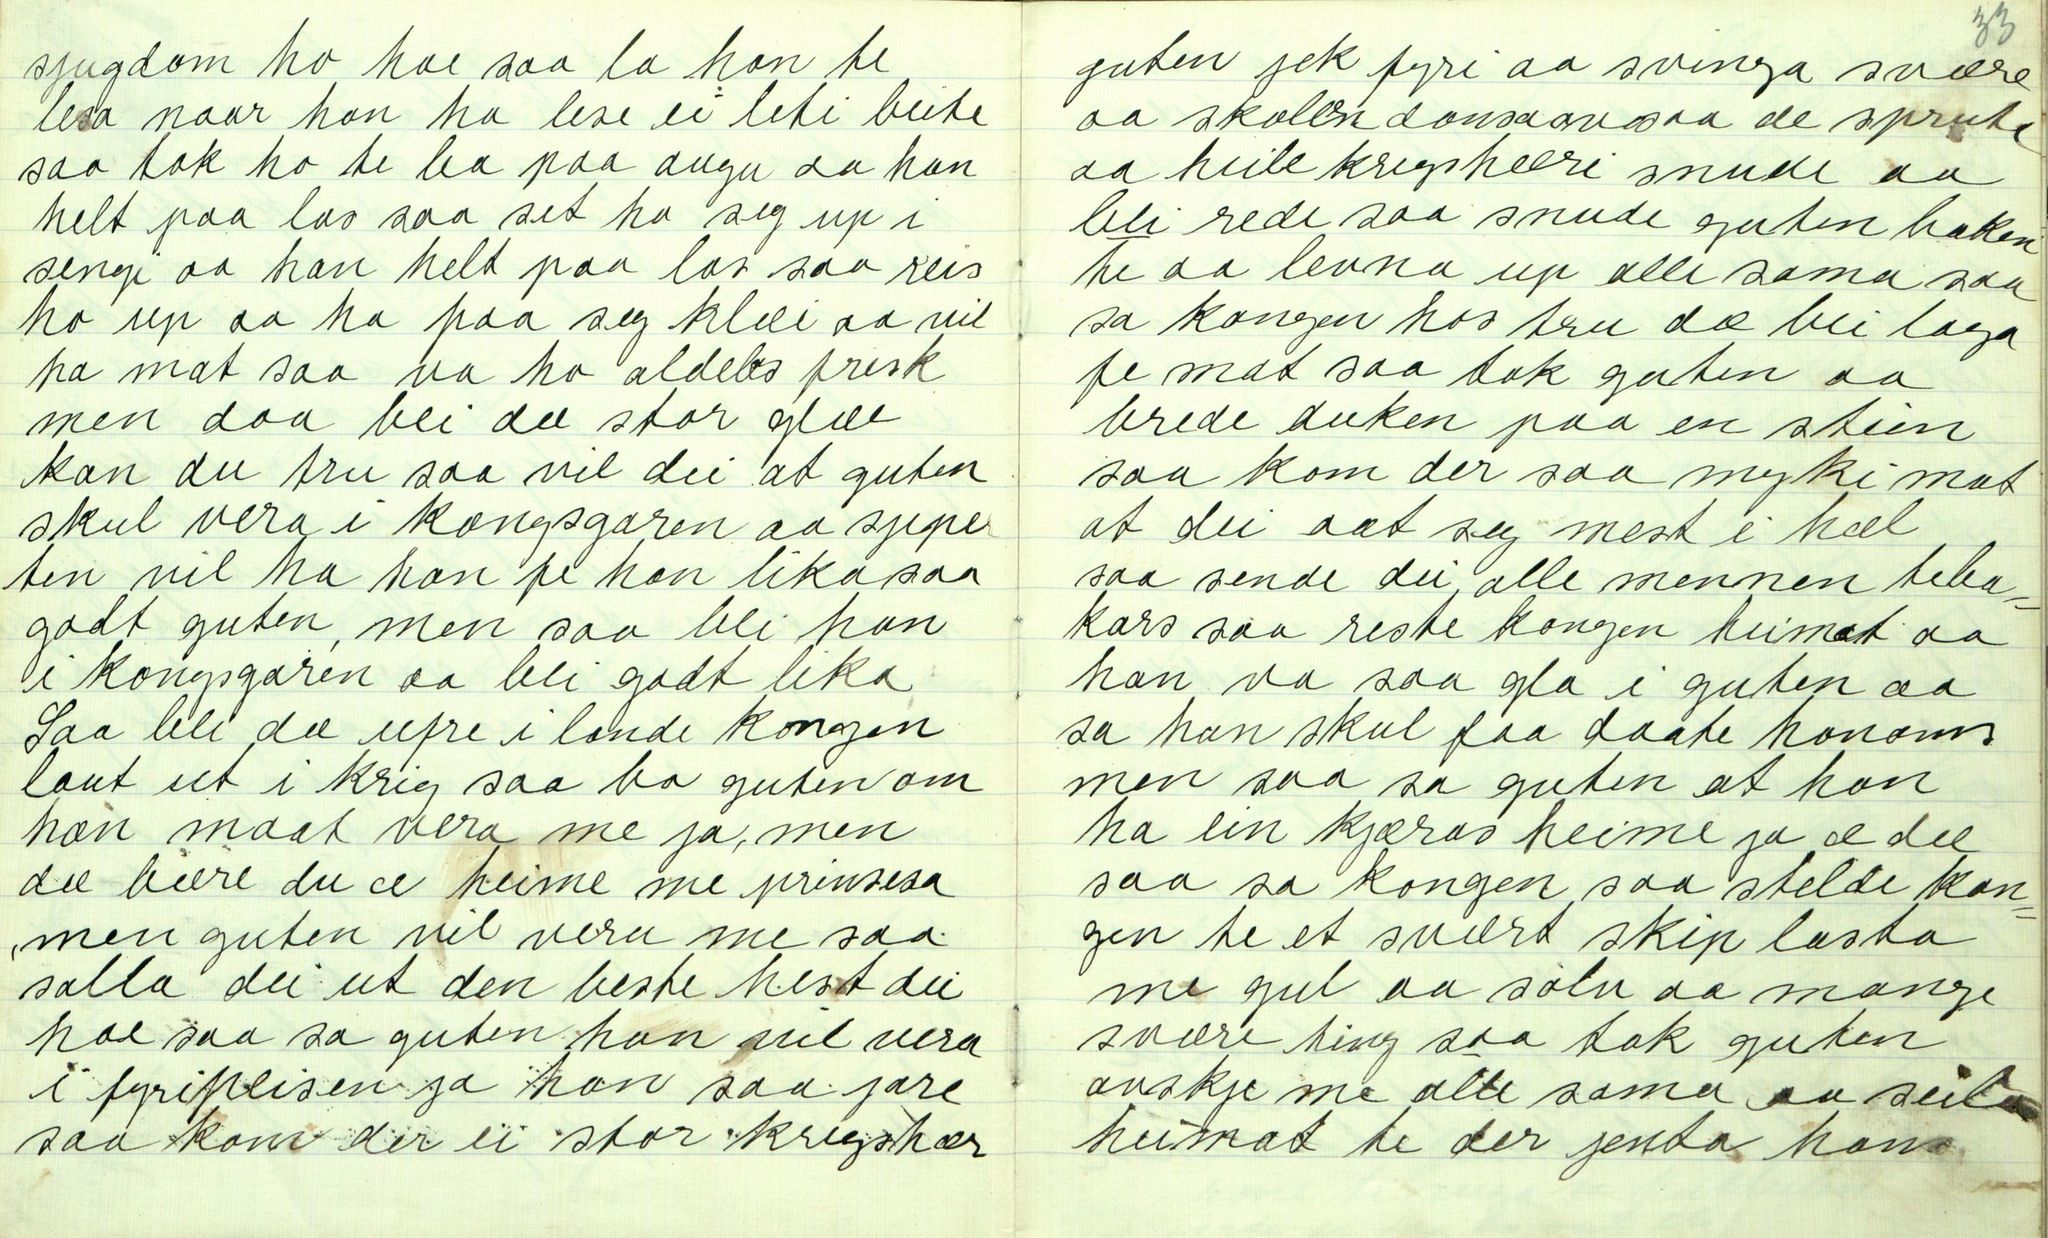 sjugdom ho hae saa la han te
lesa naar han ha lese ei leti beite
saa tok ho te lea paa augu aa han
helt paa las saa set ho seg up i
sengi aa han helt paa las saa reis
ho up aa ha paa seg klæi aa vil
ha mat saa va ho aldeles frisk
men daa blei dæ stor glæe
kan du tru saa vil dei at guten
skul vera i kongsgaren aa sjpper
ten vil ha han fe han lika saa
godt guten, men saa blei han
i kongsgaren aa blei godt lika
Saa blei dæ ufre i lande kongen
laut ut i krig saa ba guten om
han maat vera me ja, men
dæ bære du æ heime me prinsesa
men guten vil vera me saa
salla dei ut den beste hest dei
hae saa sa guten han vil vera
i fyriplisen ja han saa jore
saa kom der ei stor krigshær
33
guten jek fyri aa svinga svære
aa skallen dansa av saa de sprute
aa heile krigshæri snude aa
blei rede saa snude guten baken
te aa levna up alle sama saa
sa kongen hos tru dæ blei laga
fe mat saa tok guten aa
brede duken paa en stein
saa kom der saa myki mat
at dei aat seg mest i hæl
saa sende dei alle mennen teba=
kars saa reste kongen heimat aa
han va saa gla i guten aa
sa han skul faa daate honoms
men saa sa guten at han
ha ein kjæras heime ja æ dæ
saa sa kongen saa stelde kon=
gen te et svært skip lasta
me gul aa sølv aa mange
svære ting saa tok guten
avskje me alle sama aa seila
heimat te der jenta hans